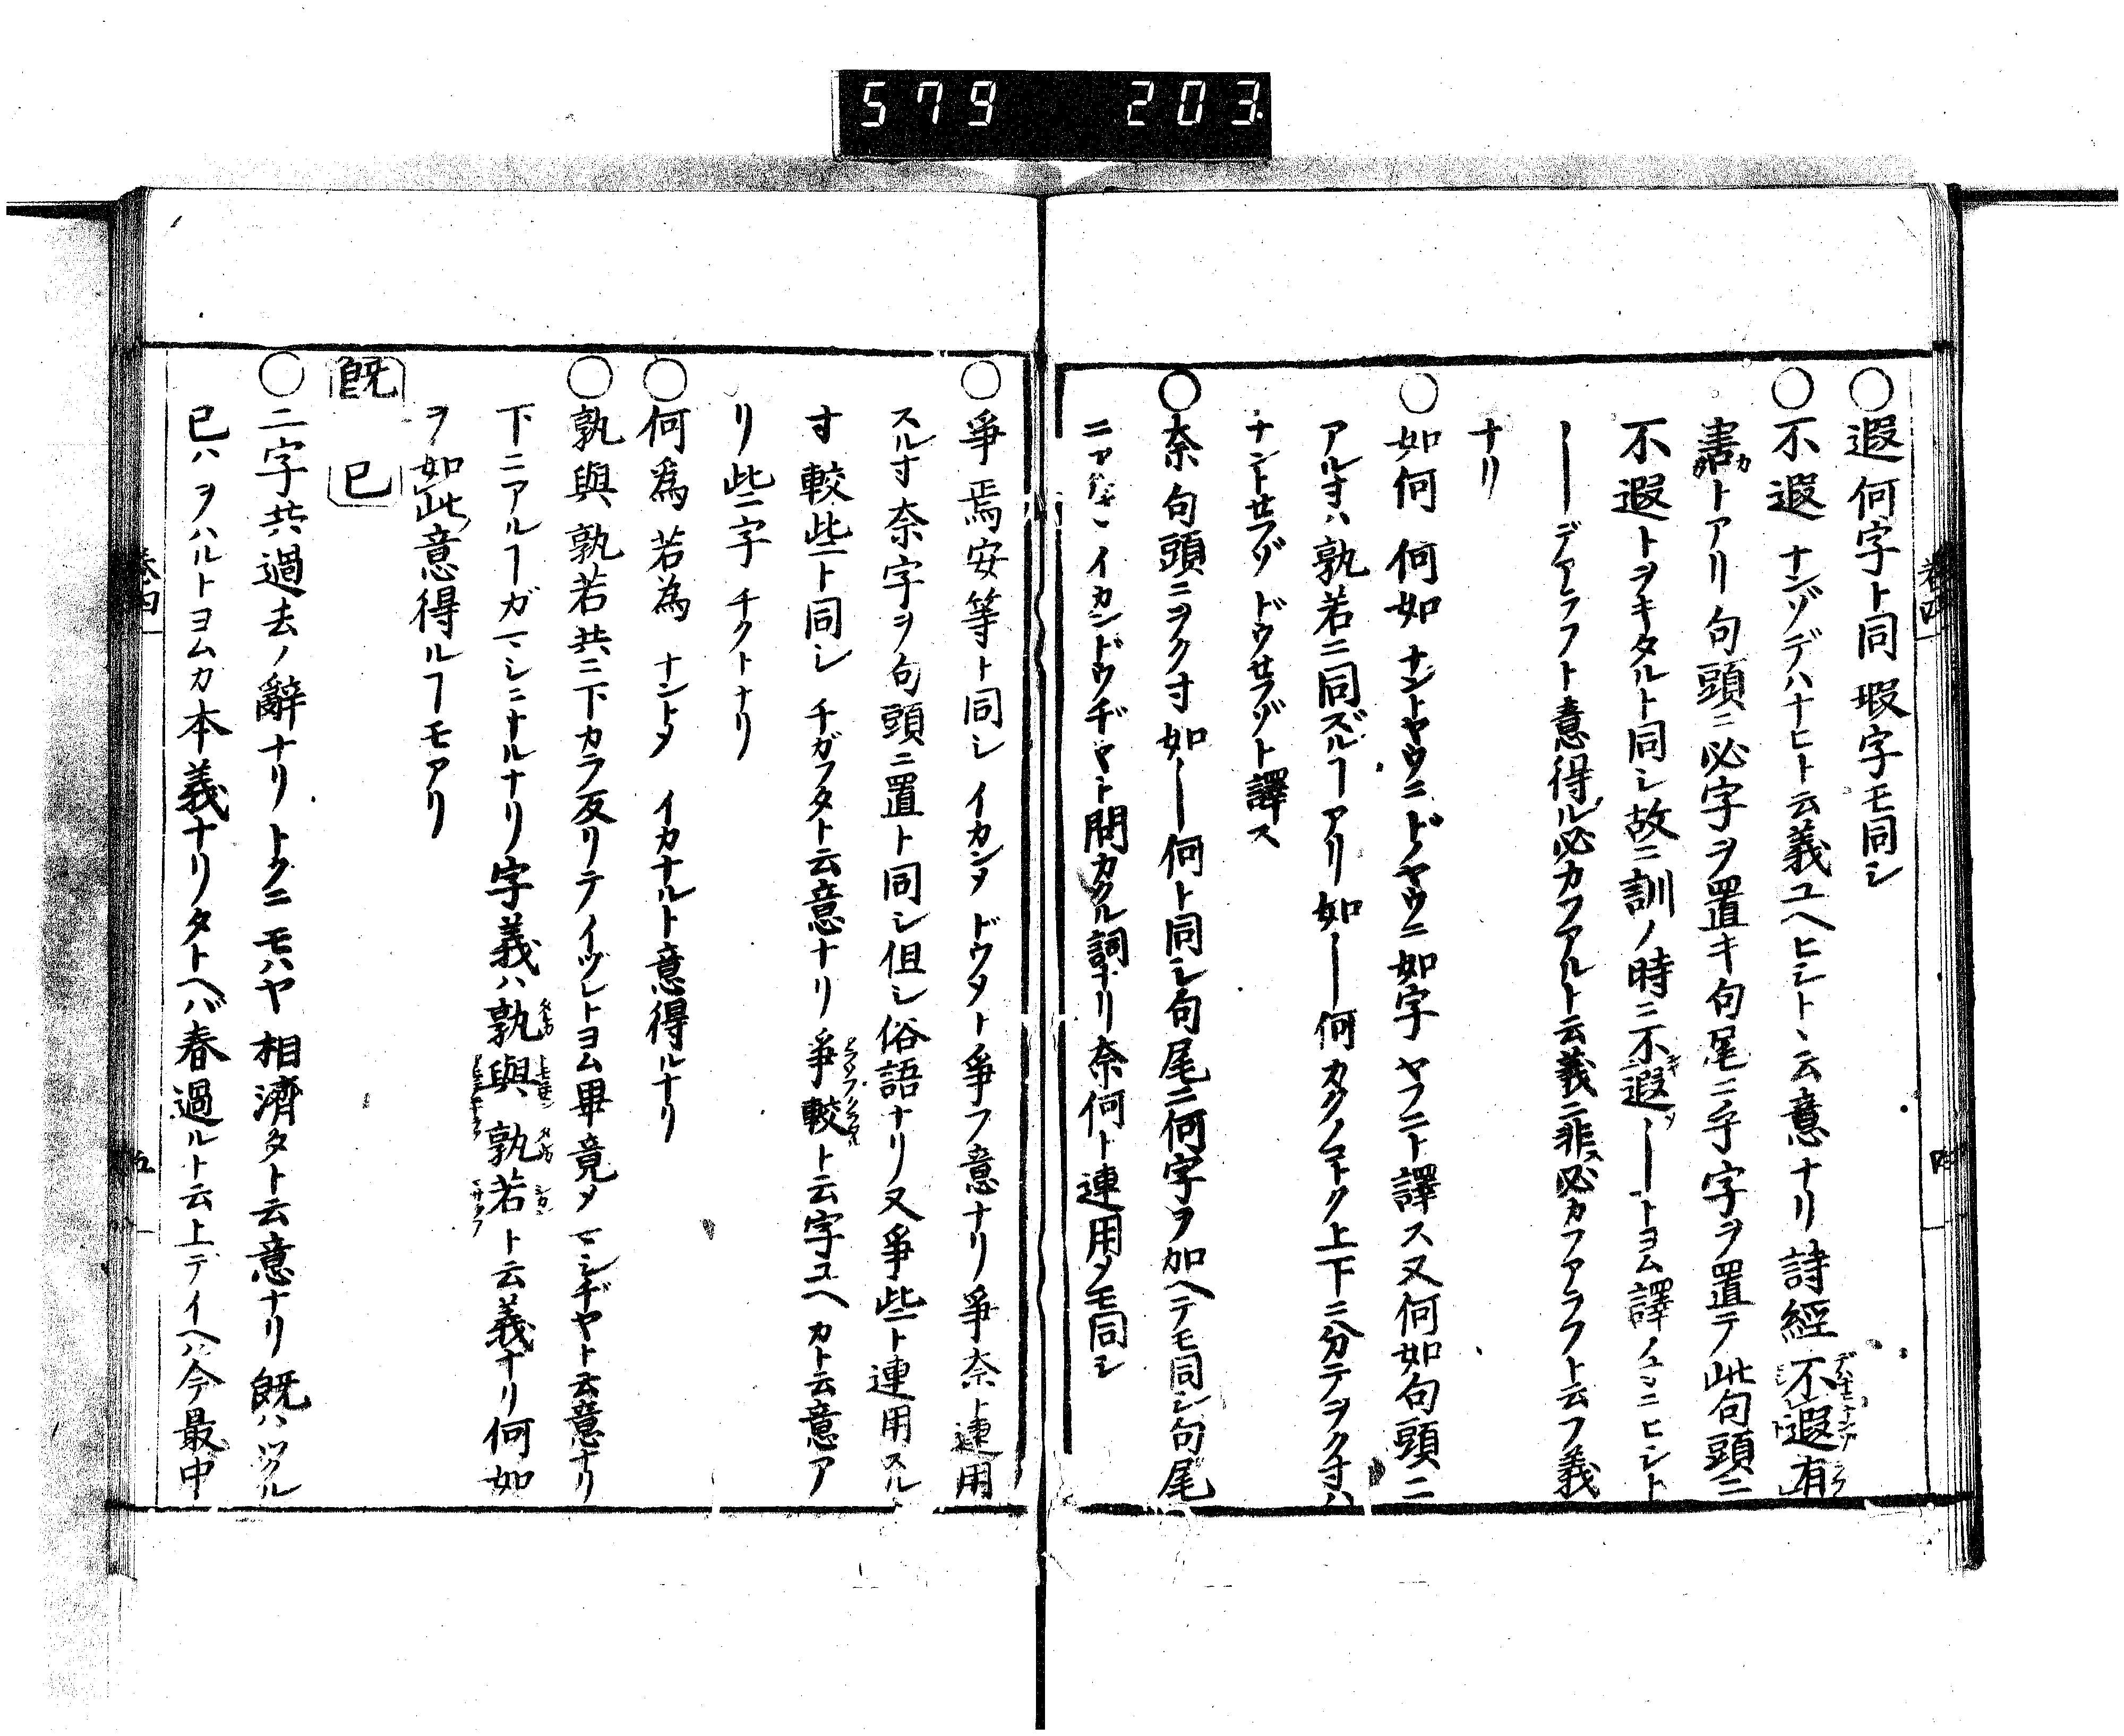 579 203
○遐 何字ト同 瑕字モ同シ
○不遐 ナンゾデハナヒト云義ユヘヒシトヽ云意ナリ 詩經 不遐有
害トアリ 句頭ニ必字ヲ置キ句尾ニ乎字ヲ置テ此句頭ニ
不遐トヲキタルト同シ故ニ訓ノ時ニ不遐――トヨム譯ノ ニヒシト
――デアラフト意得ル必カフアルト云義ニ非ス必カフアラフト云フ義
ナリ
○如何 何如 ナントヤウニ ドノヤウニ 如字 ヤフニト譯ス又何如句頭ニ
アル寸ハ孰若ニ同ズルヿアリ 如―何 カクノコトク上下ニ分テヲク寸ハ
ナントセフゾ ドウセフゾト譯ス
○奈 句頭ニヲク寸 如―何ト同シ句尾ニ何字ヲ加ヘテモ同シ句尾
イカンドウヂヤト聞カクル詞ナリ 奈何ト連用〆モ同シ
○爭 焉安等ト同シ イカンタ ドウタト爭フ意ナリ 爭奈ト連用
スル寸奈字ヲ句頭ニ置ト同シ但シ俗語ナリ又爭些ト連用スル
寸 較些ト同シ チガフタト云意ナリ 爭較ト云字ユヘカト云意ア
リ 些ニ字 チクトナリ
○何爲 若為 ナント〆 イカナルト意得ルナリ
○孰與 孰若 共ニ下カラ反リテイツレトヨム畢竟〆 マシヂヤト云意ナリ
下ニアルヿガマシニナルナリ 字義ハ孰與 孰若ト云義ナリ何如
ヲ如此意得ルヿモアリ
既 已
○二字共過去ノ辭ナリ トクニ モハヤ 相濟タト云意ナリ 既ハツクル
已ハヲハルトヨムカ本義ナリタトヘバ春過ルト云上テイヘハ今最中
卷四
四
卷四
五